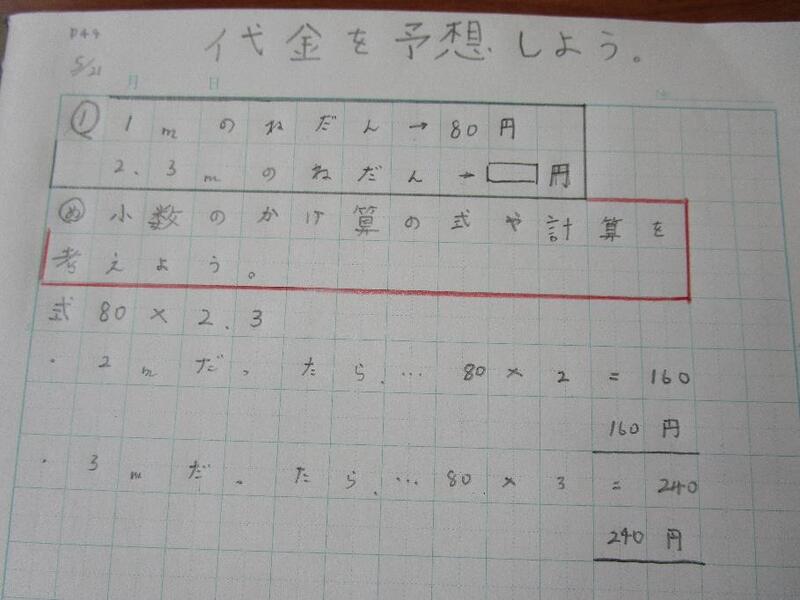 P44
5/21
代金を予想しよう。
月 日
① 1mのねだん→80円
2.3mのねだん→□円
め 小数のかけ算の式や計算を
考えよう。
式 80×2.3
・2mだったら、…80×2=160
160円
・3mだったら、…80×3=240
240円